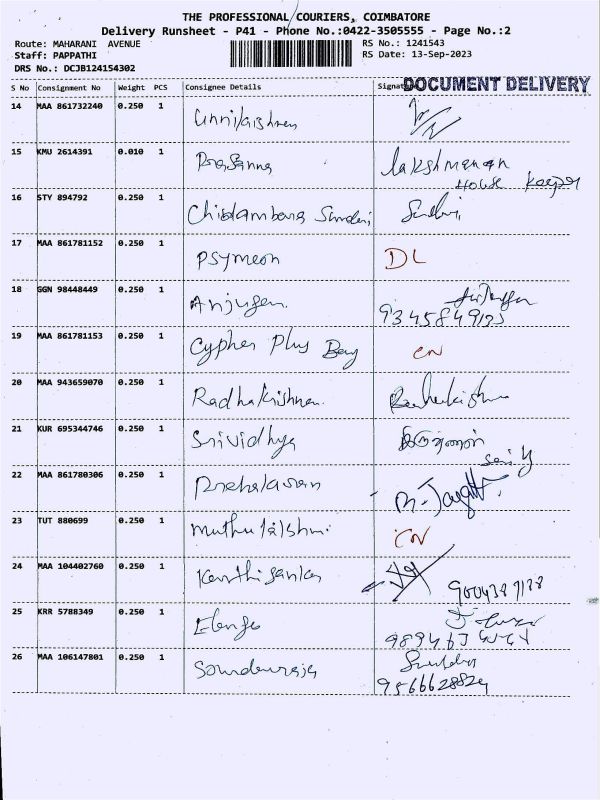 THE PROFESSIONAL COURIERS, COIMBATORE
Delivery Runsheet - P41 - Phone No.:0422-3505555 - Page No.:2
Route: MAHARANI AVENUE
RS No.: 1241543
Staff: PAPPATHI
RS Date: 13-Sep-2023
DRS No.: DCJB124154302
DOCUMENT DELIVERY
S No Consignment No Weight PCS Consignee Details Signat
14 MAA 861732240 0.250 1 Unnikrishnan
15 KMU 2614391 0.010 1 Prasanna Lakshmanan
House Keeper
16 STY 894792 0.250 1 Chidambara Sundari
17 MAA 861781152 0.250 1 Psymeon DL
18 GGN 98448449 0.250 1 Anjugan
19 MAA 861781153 0.250 1 Cypher Plus Bay CN
20 MAA 943659070 0.250 1 Radhakrishnan Radhakrishna
21 KUR 695344746 0.250 1 Srividhya
22 MAA 861780306 0.250 1
23 TUT 880699 0.250 1 Muthulakshmi CN
24 MAA 104402760 0.250 1
25 KRR 5788349 0.250 1
26 MAA 106147801 0.250 1 Soundararaja